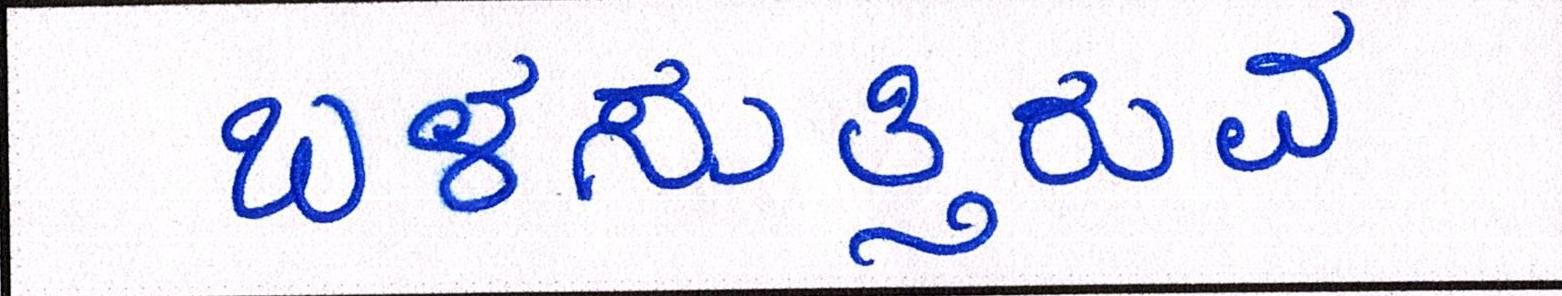 ಬಳಸುತ್ತಿರುವ